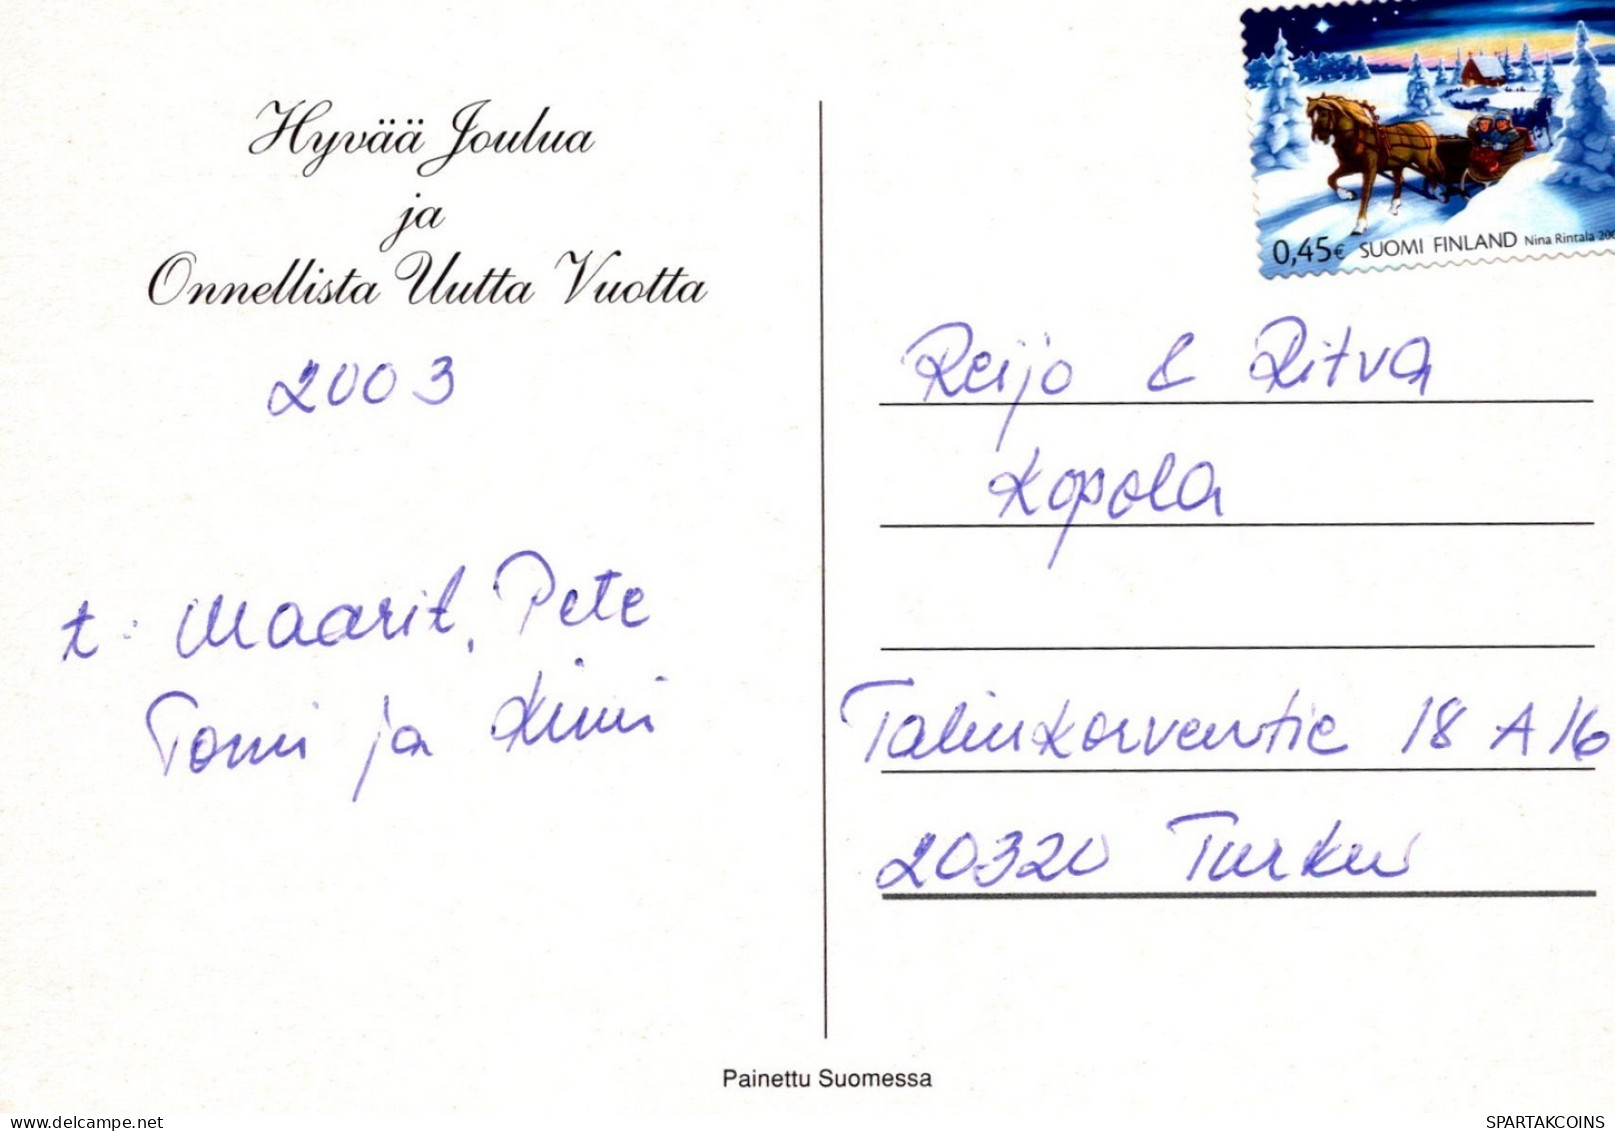 Hyvää Joulua
ja
Onnellista Uutta Vuotta
2003
t: Maarit, Pete
Tomi ja Kimi
0,45€ SUOMI FINLAND Nina Rintala
Reijo & Ritva
Kopola
Talinkorventie 18 A 16
20320 Turku
Painettu Suomessa
delcampe.net
SPARTAKCOINS